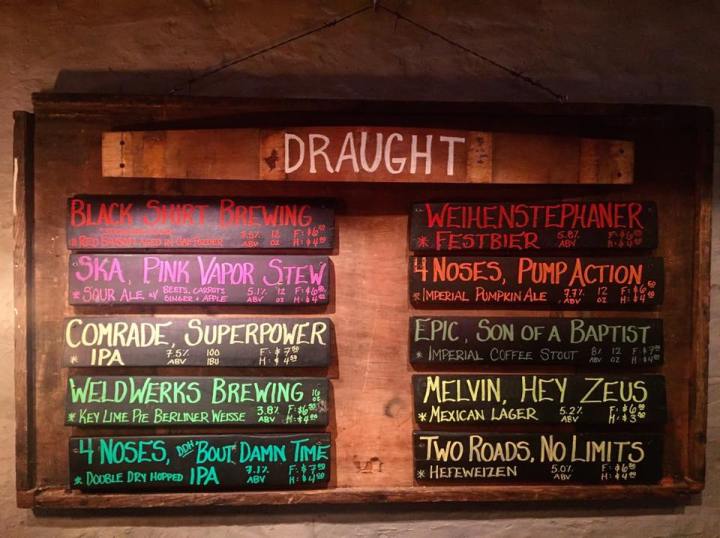 DRAUGHT
BLACK SHIRT BREWING
* RED SAISON AGED IN OAK FOEDER 7.5% ABV 12 OZ F: $6 H: $4
SKA, PINK VAPOR STEW
* SOUR ALE w/ BEETS, CARROTS GINGER + APPLE 5.1% ABV 12 OZ F: $6 H: $4
COMRADE, SUPERPOWER
* IPA 7.5% ABV 100 IBU F: $7 H: $4
WELDWERKS BREWING 16 OZ
* KEY LIME PIE BERLINER WEISSE 3.8% ABV F: $6 H: $4
4 NOSES, DDH 'BOUT DAMN TIME
* DOUBLE DRY HOPPED IPA 7.1% ABV F: $7 H: $4
WEIHENSTEPHANER
* FESTBIER 5.8% ABV F: $6 H: $4
4 NOSES, PUMP ACTION
* IMPERIAL PUMPKIN ALE 7.7% ABV 12 OZ F: $6 H: $4
EPIC, SON OF A BAPTIST
* IMPERIAL COFFEE STOUT 8% ABV 12 OZ F: $7 H: $4
MELVIN, HEY ZEUS
* MEXICAN LAGER 5.2% ABV F: $6 H: $3
TWO ROADS, NO LIMITS
* HEFEWEIZEN 5.0% ABV F: $6 H: $4